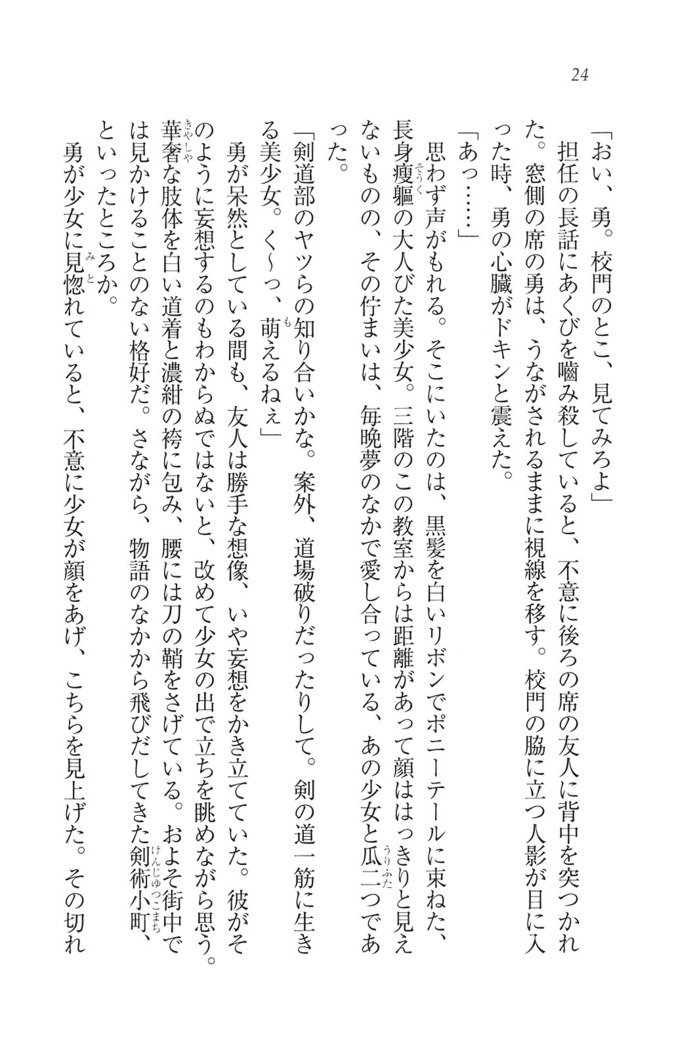 24
「おい、勇。校門のとこ、見てみろよ」
　担任の長話にあくびを嚙み殺していると、不意に後ろの席の友人に背中を突つかれ
た。窓側の席の勇は、うながされるままに視線を移す。校門の脇に立つ人影が目に入
った時、勇の心臓がドキンと震えた。
「あっ……」
　思わず声がもれる。そこにいたのは、黒髪を白いリボンでポニーテールに束ねた、
長身瘦軀の大人びた美少女。三階のこの教室からは距離があって顔ははっきりと見え
ないものの、その佇まいは、毎晩夢のなかで愛し合っている、あの少女と瓜二つであ
った。
「剣道部のヤツらの知り合いかな。案外、道場破りだったりして。剣の道一筋に生き
る美少女。く～っ、萌えるねぇ」
　勇が呆然としている間も、友人は勝手な想像、いや妄想をかき立てていた。彼がそ
のように妄想するのもわからぬではないと、改めて少女の出で立ちを眺めながら思う。
華奢な肢体を白い道着と濃紺の袴に包み、腰には刀の鞘をさげている。およそ街中で
は見かけることのない格好だ。さながら、物語のなかから飛びだしてきた剣術小町、
といったところか。
　勇が少女に見惚れていると、不意に少女が顔をあげ、こちらを見上げた。その切れ